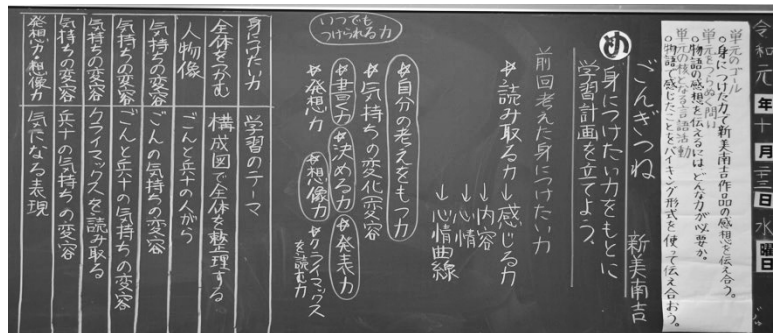 令和元年十月二十三日水曜日
単元のゴール
○身につけた力で新美南吉作品の感想を伝え合う。
単元をつらぬく問い
○物語の感想を伝えるにはどんな力が必要か。
単元の核となる言語活動
○物語で感じたことをバイキング形式を使って伝え合おう。
ごんぎつね
新美南吉
め 身につけたい力をもとに
学習計画を立てよう。
前回考えた身につけたい力
☆読み取る力→感じる力
→内容
→心情
→心情曲線
☆自分の考えをもつ力
☆気持ちの変化変容
☆書く力☆決める力☆発表力
☆発想力☆想像力☆クライマックス
を読む力
いつでも
つけられる力
身につけたい力
学習のテーマ
全体をつかむ
構成図で全体を整理する
人物像
ごんと兵十の人がら
気持ちの変容
ごんの気持ちの変容
気持ちの変容
ごんと兵十の気持ちの変容
気持ちの変容
クライマックスを読み取る
気持ちの変容
兵十の気持ちの変容
発想力・想像力
気になる表現